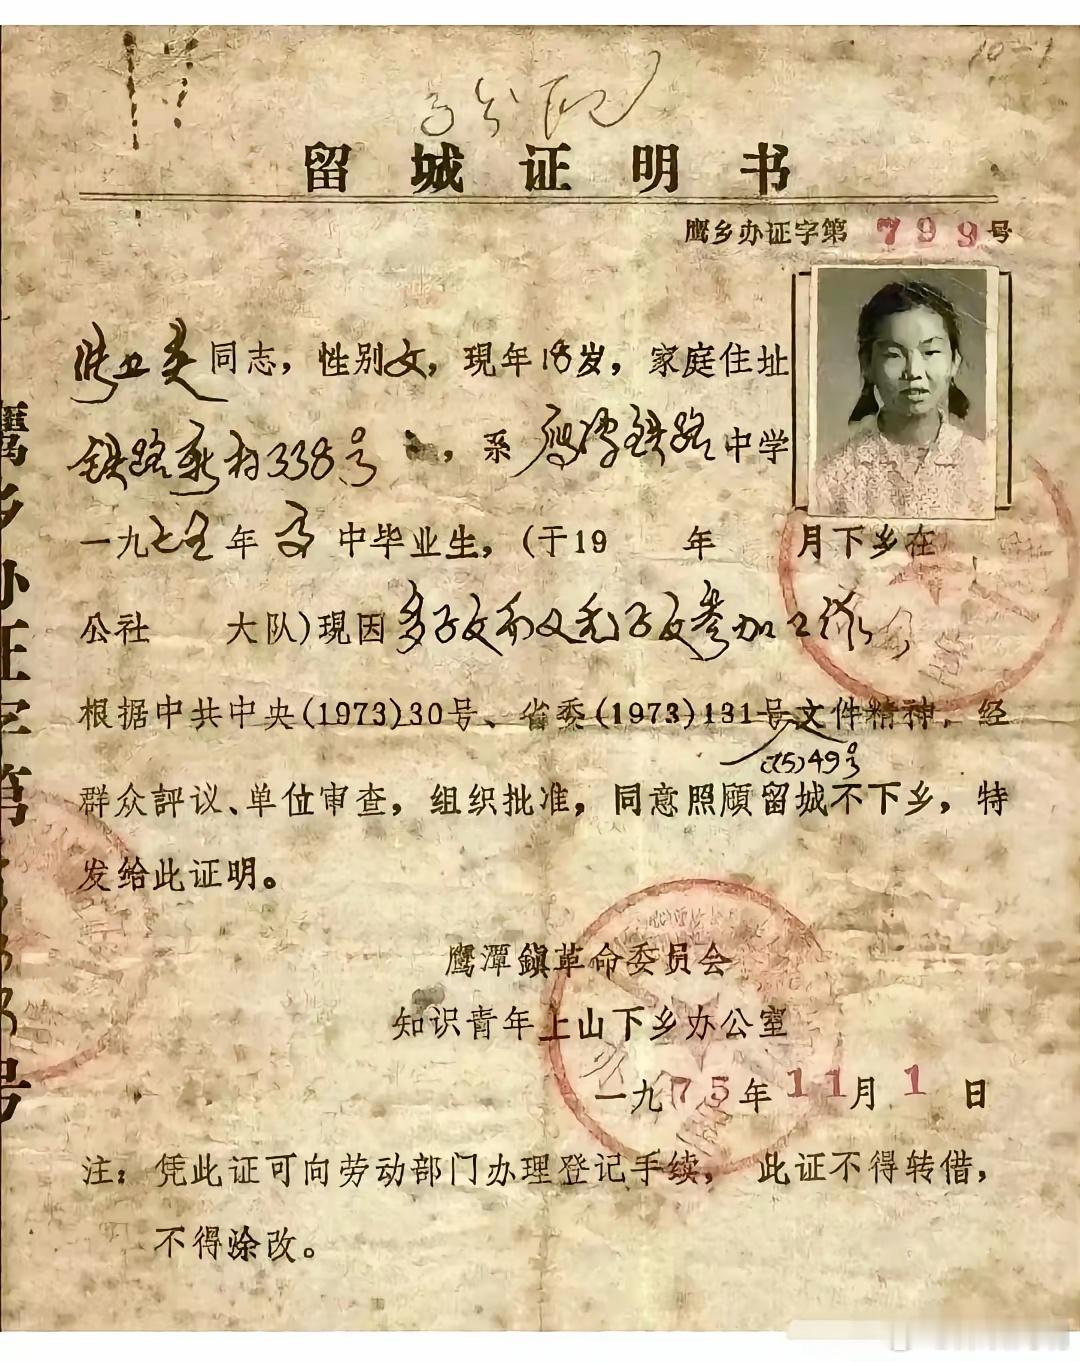 10-1
留城证明书
鹰乡办证字第799号
张卫英同志，性别女，現年18岁，家庭住址
铁路新村338号，系鹰潭铁路中学
一九七五年高中毕业生，(于19 年 月下乡在
公社 大队)現因多子女而又无子女参加工作
根据中共中央(1973)30号、省委(1973)131号文件精神，经
(75)49号
群众評议、单位审查，组织批准，同意照顧留城不下乡，特
发给此证明。
鹰潭鎮革命委员会
知识青年上山下乡办公室
一九75年11月1日
注：凭此证可向劳动部门办理登记手续，此证不得转借，
不得涂改。
鹰乡办证字第 号